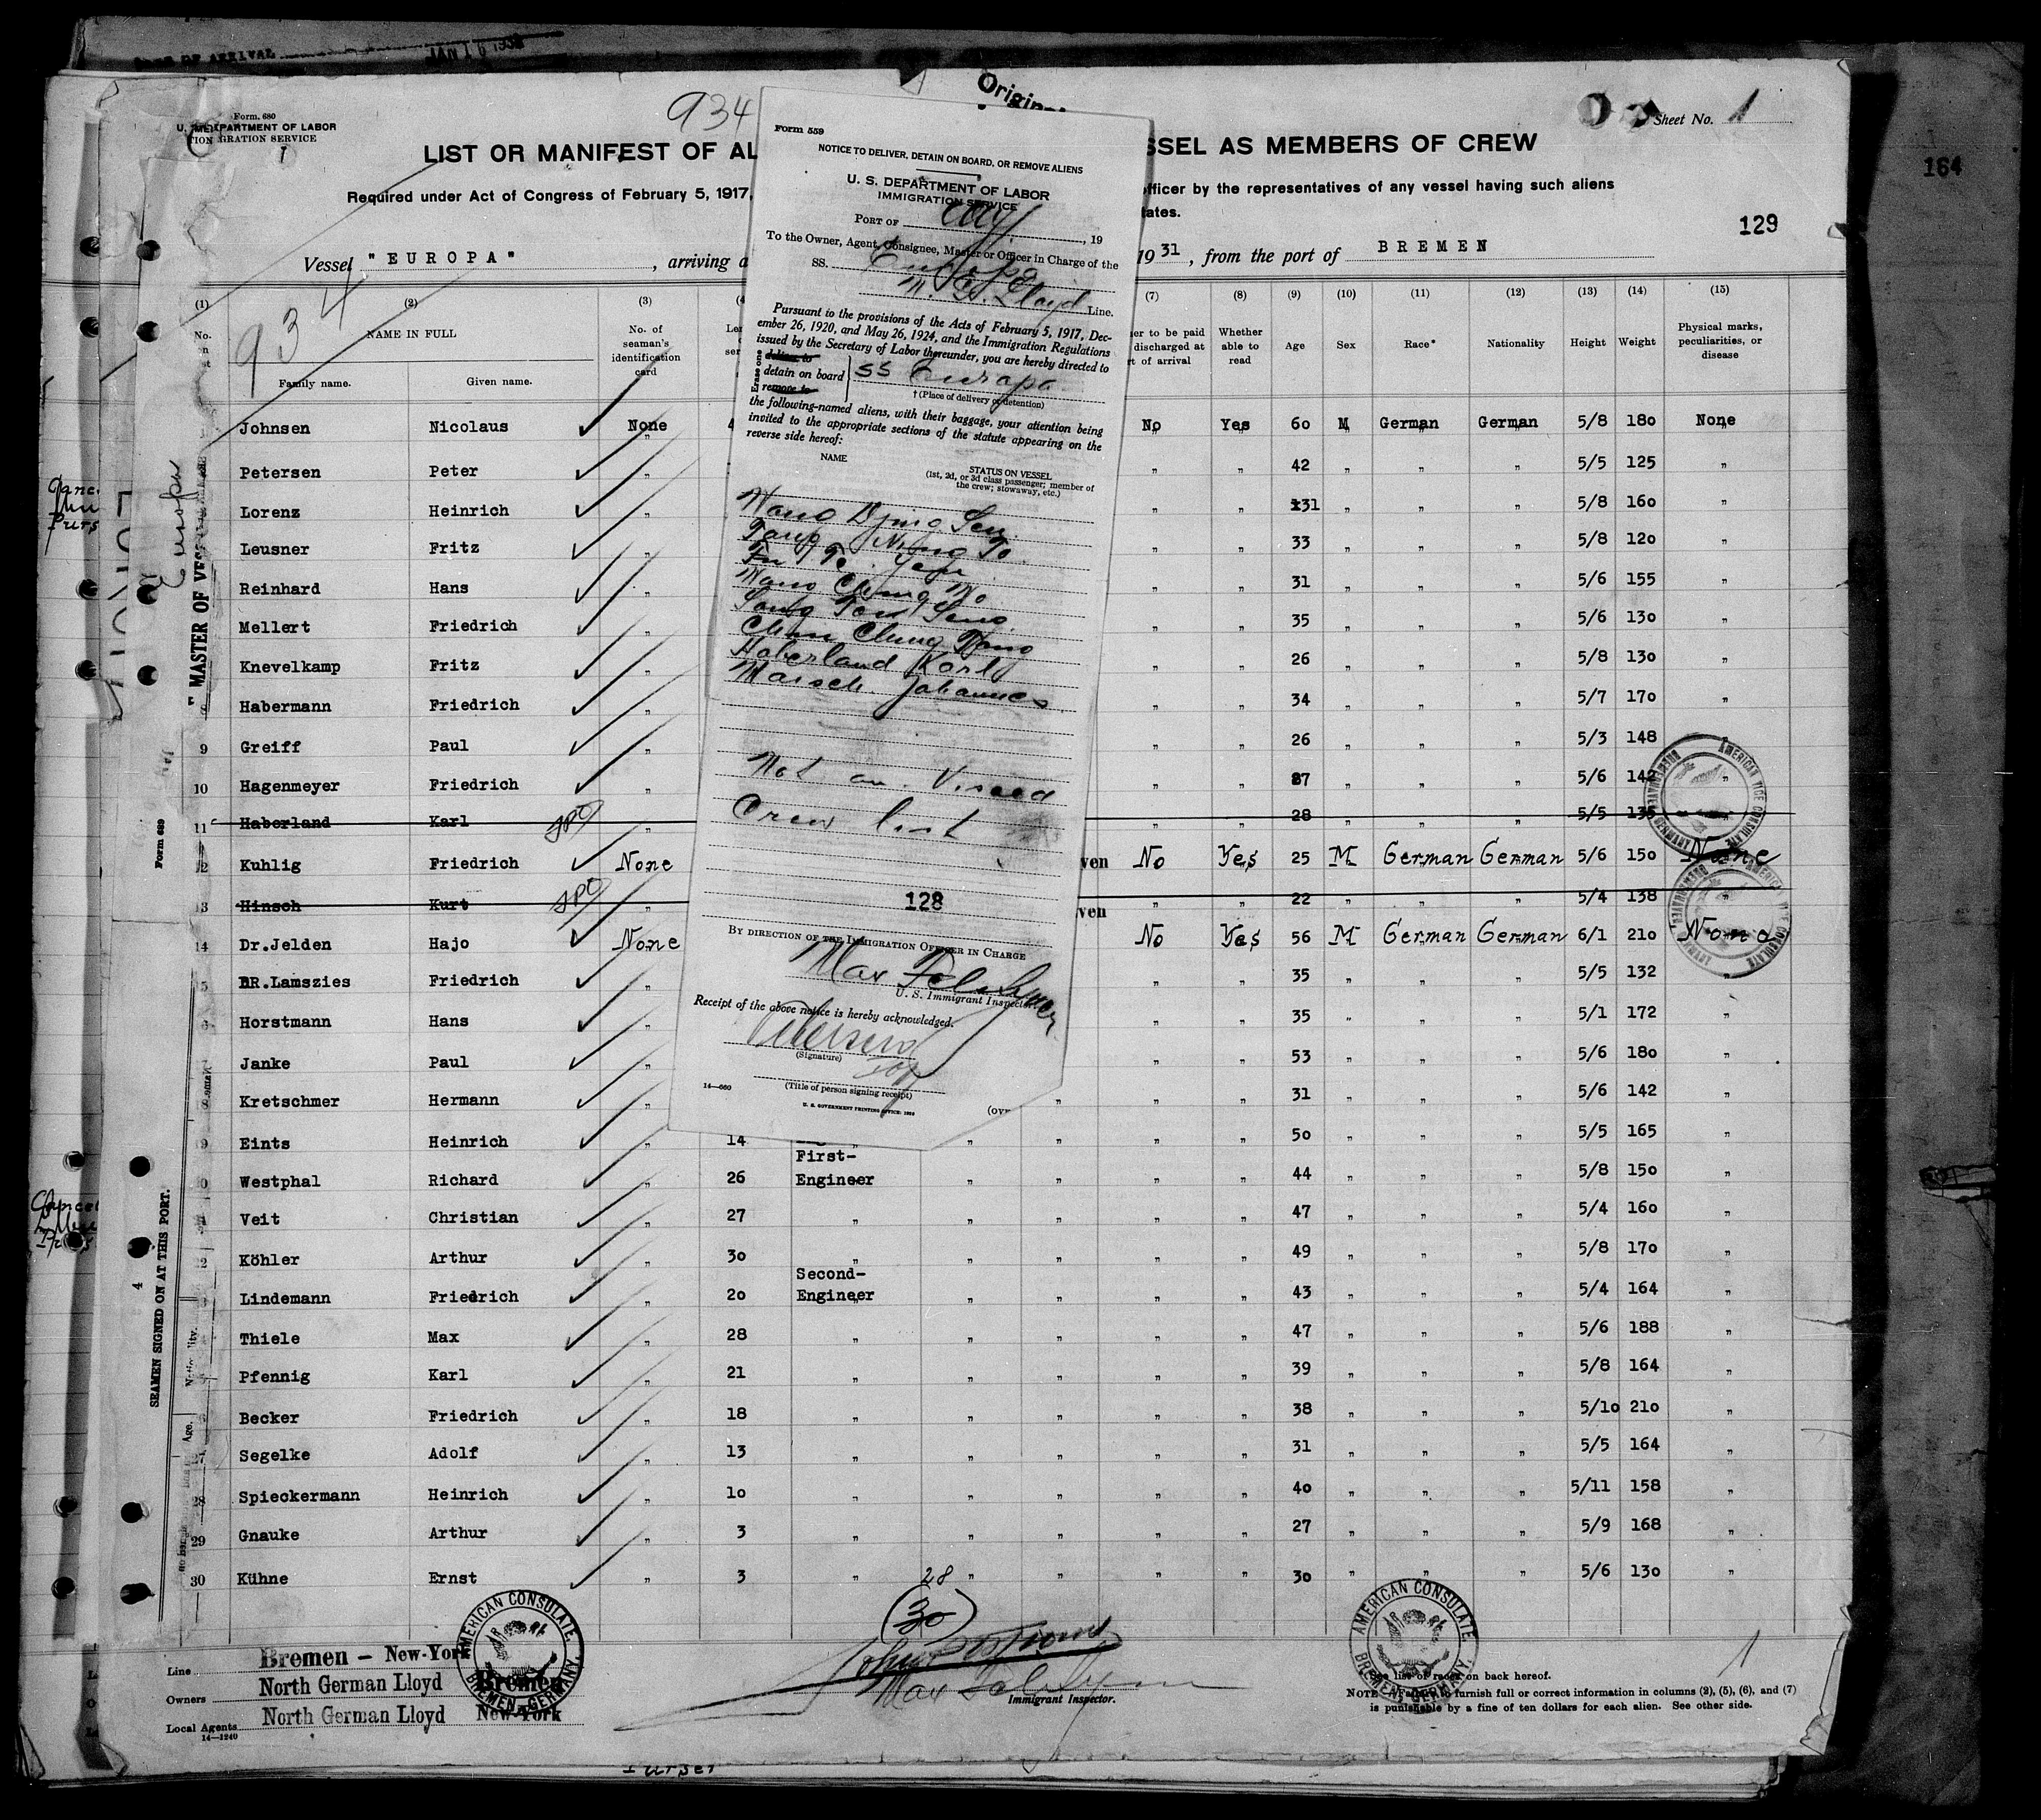 OF ARRIVAL JAN 16 193
Form. 680
U. S. DEPARTMENT OF LABOR
GRATION SERVICE
934
Origin
Sheet No. 1
LIST OR MANIFEST OF AL
SSEL AS MEMBERS OF CREW
Required under Act of Congress of February 5, 1917,
fficer by the representatives of any vessel having such aliens
tates.
129
164
Vessel "EUROPA", arriving a
19 31, from the port of BREMEN
934
(1) (2) (3) (7) (8) (9) (10) (11) (12) (13) (14) (15)
NAME IN FULL
Family name. Given name.
No. of seaman's identification card
er to be paid discharged at rt of arrival
Whether able to read
Age Sex Race* Nationality Height Weight
Physical marks, peculiarities, or disease
Johnsen Nicolaus None No Yes 60 M German German 5/8 180 None
Petersen Peter " " " 42 " " " 5/5 125 "
Lorenz Heinrich " " " 31 " " " 5/8 160 "
Leusner Fritz " " " 33 " " " 5/8 120 "
Reinhard Hans " " " 31 " " " 5/6 155 "
Mellert Friedrich " " " 35 " " " 5/6 130 "
Knevelkamp Fritz " " " 26 " " " 5/8 130 "
8 Habermann Friedrich " " " 34 " " " 5/7 170 "
9 Greiff Paul " " " 26 " " " 5/3 148 "
10 Hagenmeyer Friedrich " " " 37 " " " 5/6 142 "
11 Haberland Karl " " " 28 " " " 5/5 135 "
12 Kuhlig Friedrich None ven No Yes 25 M German German 5/6 150 None
13 Hinsch Kurt " ven " " 22 " " " 5/4 138 "
14 Dr.Jelden Hajo None No Yes 56 M German German 6/1 210 None
5 DR.Lamszies Friedrich " " " 35 " " " 5/5 132 "
6 Horstmann Hans " " " 35 " " " 5/1 172 "
7 Janke Paul " " " 53 " " " 5/6 180 "
8 Kretschmer Hermann " " " " 31 " " " 5/6 142 "
9 Eints Heinrich " 14 " " " " " 50 " " " 5/5 165 "
First-
0 Westphal Richard " 26 Engineer " " " " 44 " " " 5/8 150 "
Veit Christian " 27 " " " " " 47 " " " 5/4 160 "
2 Köhler Arthur " 30 " " " " " 49 " " " 5/8 170 "
Second-
3 Lindemann Friedrich " 20 Engineer " " " " 43 " " " 5/4 164 "
Thiele Max " 28 " " " " " 47 " " " 5/6 188 "
Pfennig Karl " 21 " " " " " 39 " " " 5/8 164 "
Becker Friedrich " 18 " " " " " 38 " " " 5/10 210 "
27 Segelke Adolf " 13 " " " " " 31 " " " 5/5 164 "
28 Spieckermann Heinrich " 10 " " " " " 40 " " " 5/11 158 "
29 Gnauke Arthur " 3 " " " " " 27 " " " 5/9 168 "
30 Kühne Ernst " 3 " " " " " 30 " " " 5/6 130 "
28
(30)
Line Bremen - New-York
Owners North German Lloyd Bremen
Local Agents North German Lloyd New-York
14—1240
AMERICAN CONSULATE, BREMEN, GERMANY.
AMERICAN CONSULATE, BREMEN, GERMANY.
Immigrant Inspector.
See list of races on back hereof.
NOTE.—Failure to furnish full or correct information in columns (2), (5), (6), and (7)
is punishable by a fine of ten dollars for each alien. See other side.
1
Form 559
NOTICE TO DELIVER, DETAIN ON BOARD, OR REMOVE ALIENS
U. S. DEPARTMENT OF LABOR
IMMIGRATION SERVICE
PORT OF , 19
To the Owner, Agent, Consignee, Master or Officer in Charge of the
SS. Europa
N. G. Lloyd Line.
Pursuant to the provisions of the Acts of February 5, 1917, Dec-
ember 26, 1920, and May 26, 1924, and the Immigration Regulations
issued by the Secretary of Labor thereunder, you are hereby directed to
Erase one
deliver to
detain on board
remove to
SS Europa
† (Place of delivery or detention)
the following-named aliens, with their baggage, your attention being
invited to the appropriate sections of the statute appearing on the
reverse side hereof:
NAME
STATUS ON VESSEL
(1st, 2d, or 3d class passenger; member of
the crew; stowaway, etc.)
Haberland Karl
Johannes
Not on Visaed
Crew list
128
BY DIRECTION OF THE IMMIGRATION OFFICER IN CHARGE
Max
U. S. Immigrant Inspector
Receipt of the above notice is hereby acknowledged.
(Signature)
(Title of person signing receipt)
14—660
U. S. GOVERNMENT PRINTING OFFICE: 1928
(ov
" MASTER OF VES
Europa
Form 689
SEAMEN SIGNED ON AT THIS PORT.
4
Age.
Purser